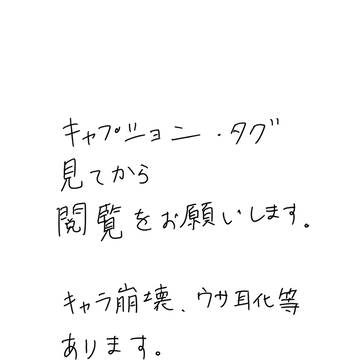 キャプション・タグ
見てから
閲覧をお願いします。
キャラ崩壊、ウサ耳化等
あります。